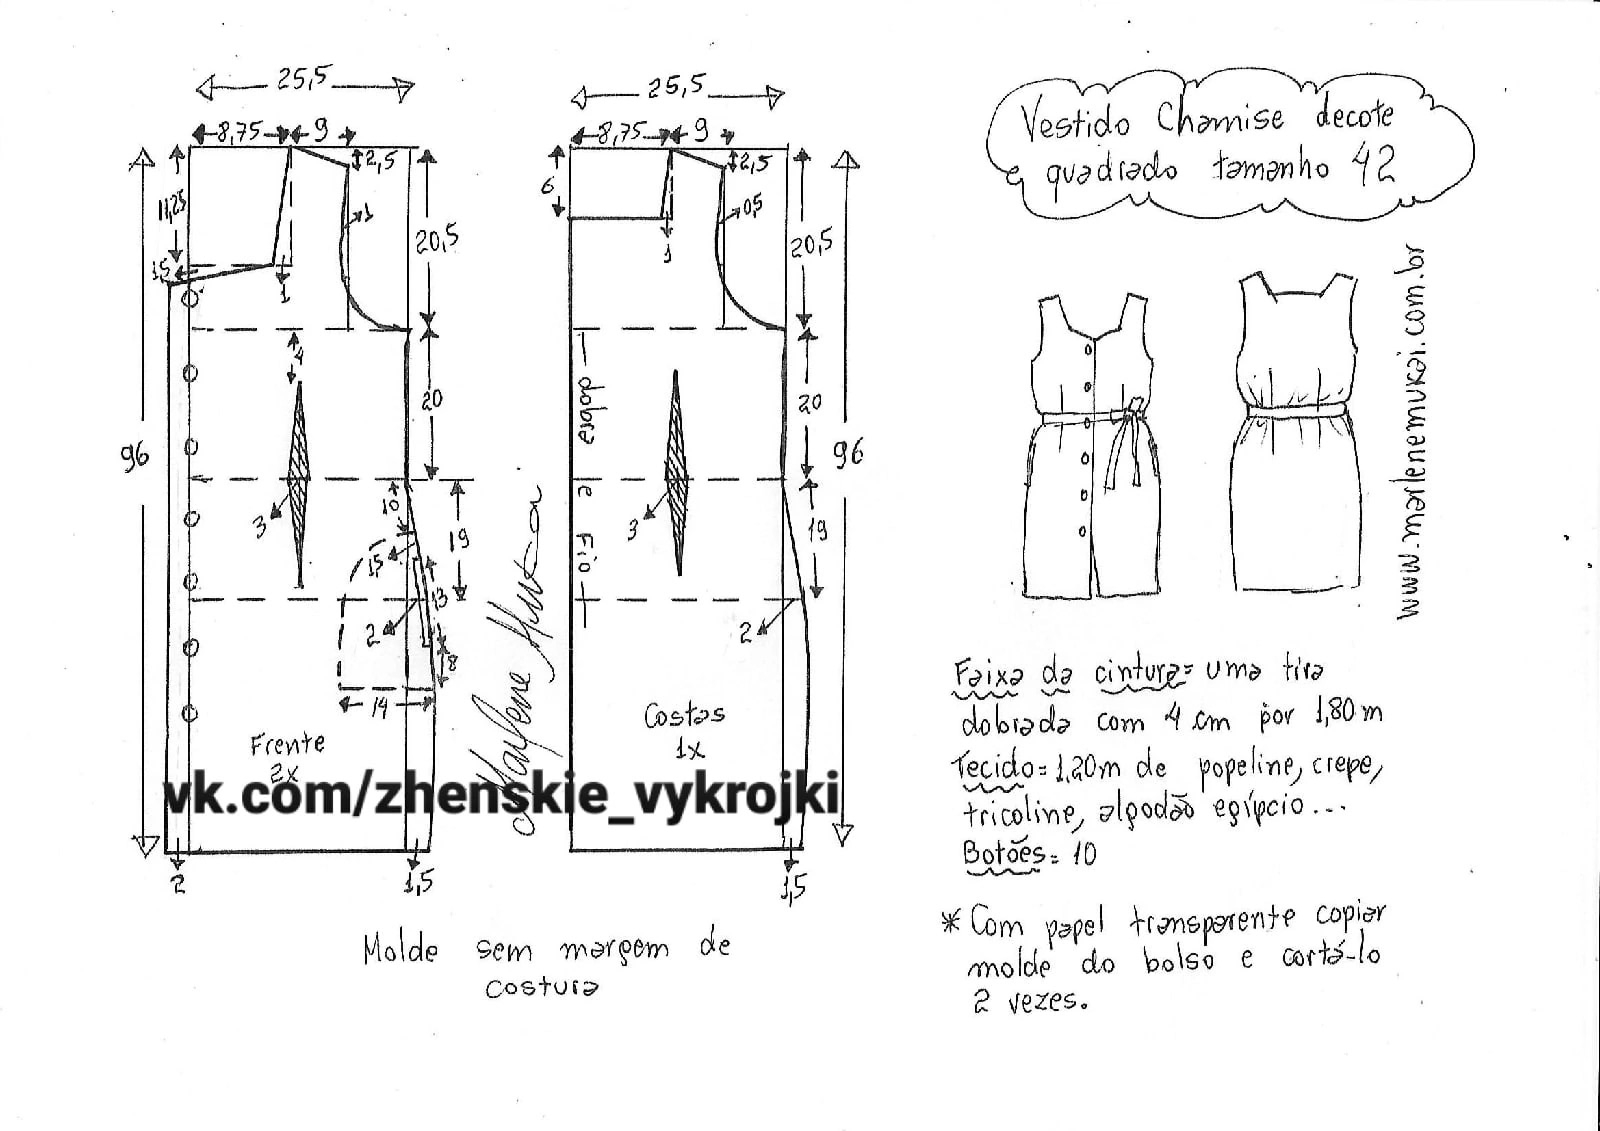 25,5
8,75
9
2,5
11,25
1
20,5
1,5
1
4
20
96
3
10
19
1,5
13
2
8
14
Frente
2x
2
1,5
25,5
8,75
9
2,5
6
0,5
1
20,5
dobra e Fio
20
96
3
19
2
Costas
1x
1,5
Marlene Mukai
vk.com/zhenskie_vykrojki
Molde sem margem de
costura
Vestido Chamise decote
e quadrado tamanho 42
www.marlenemukai.com.br
Faixa da cintura= uma tira
dobrada com 4 cm por 1,80 m
Tecido= 1,20m de popeline, crepe,
tricoline, algodão egípcio...
Botões= 10
* Com papel transparente copiar
molde do bolso e cortá-lo
2 vezes.